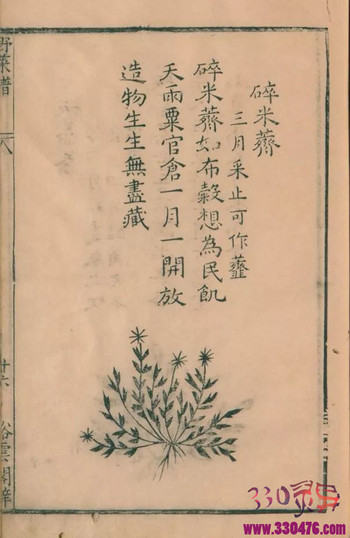 碎米薺
三月采止可作虀
碎米薺如布穀想為民飢
天雨粟官倉一月一開放
造物生生無盡藏
野菜譜
八
廿六
330
www.330476.com